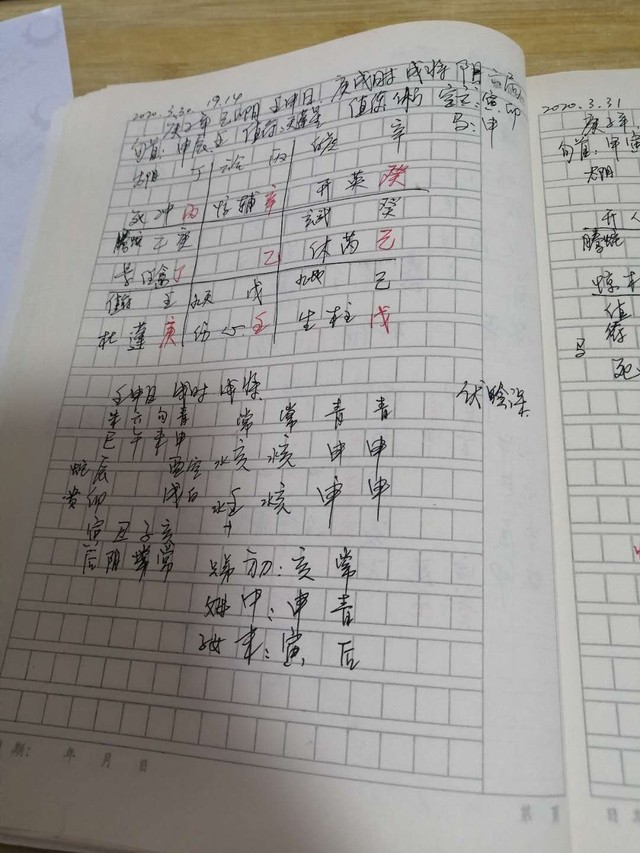 2020.3.30 19:14
庚子年 己卯月 壬申日 庚戌时 戌将 阴六局
旬首:甲辰壬 值符:天蓬星 值使:休门 空亡:寅卯
马:申
太阴 丁 六合 丙 白虎 辛
辛
开英 癸
螣蛇 庚
玄武 癸
乙
休芮 己
值符 壬 九天 戊 九地 己
杜蓬 庚 伤心 壬 生柱 戊
壬申日 戌时 戌将
伏吟课
朱六勾青 常 常 青 青
巳午未申 水亥 水亥 申 申
蛇辰 酉空
贵卯 戌白 水壬 水亥 申 申
寅丑子亥
后阴 常
兄弟 初:亥 常
父母 中:申 青
子女 末:寅 后
期: 年 月 日
第 页
2020.3.31
庚子年
旬首:甲寅
太阴
开人
螣蛇
惊柱
值符
马
死